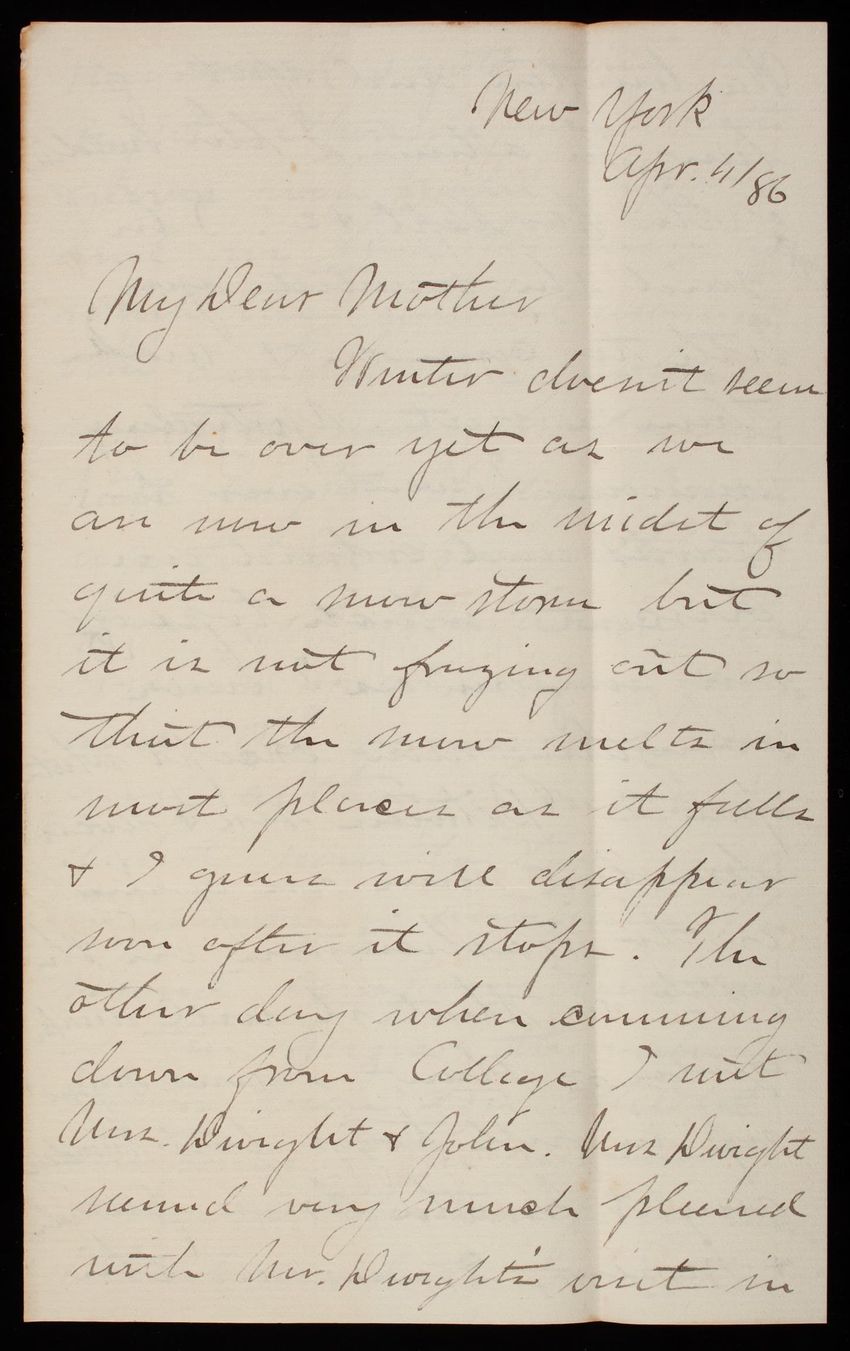 New York
Apr. 4/86
My Dear Mother
Winter doesn't seem
to be over yet as we
are now in the midst of
quite a snow storm but
it is not freezing out so
that the snow melts in
most places as it falls
& I guess will disappear
soon after it stops. The
other day when comming
down from College I met
Mrs. Dwight & John. Mrs Dwight
seemed very much pleased
with Mr. Dwight's visit in